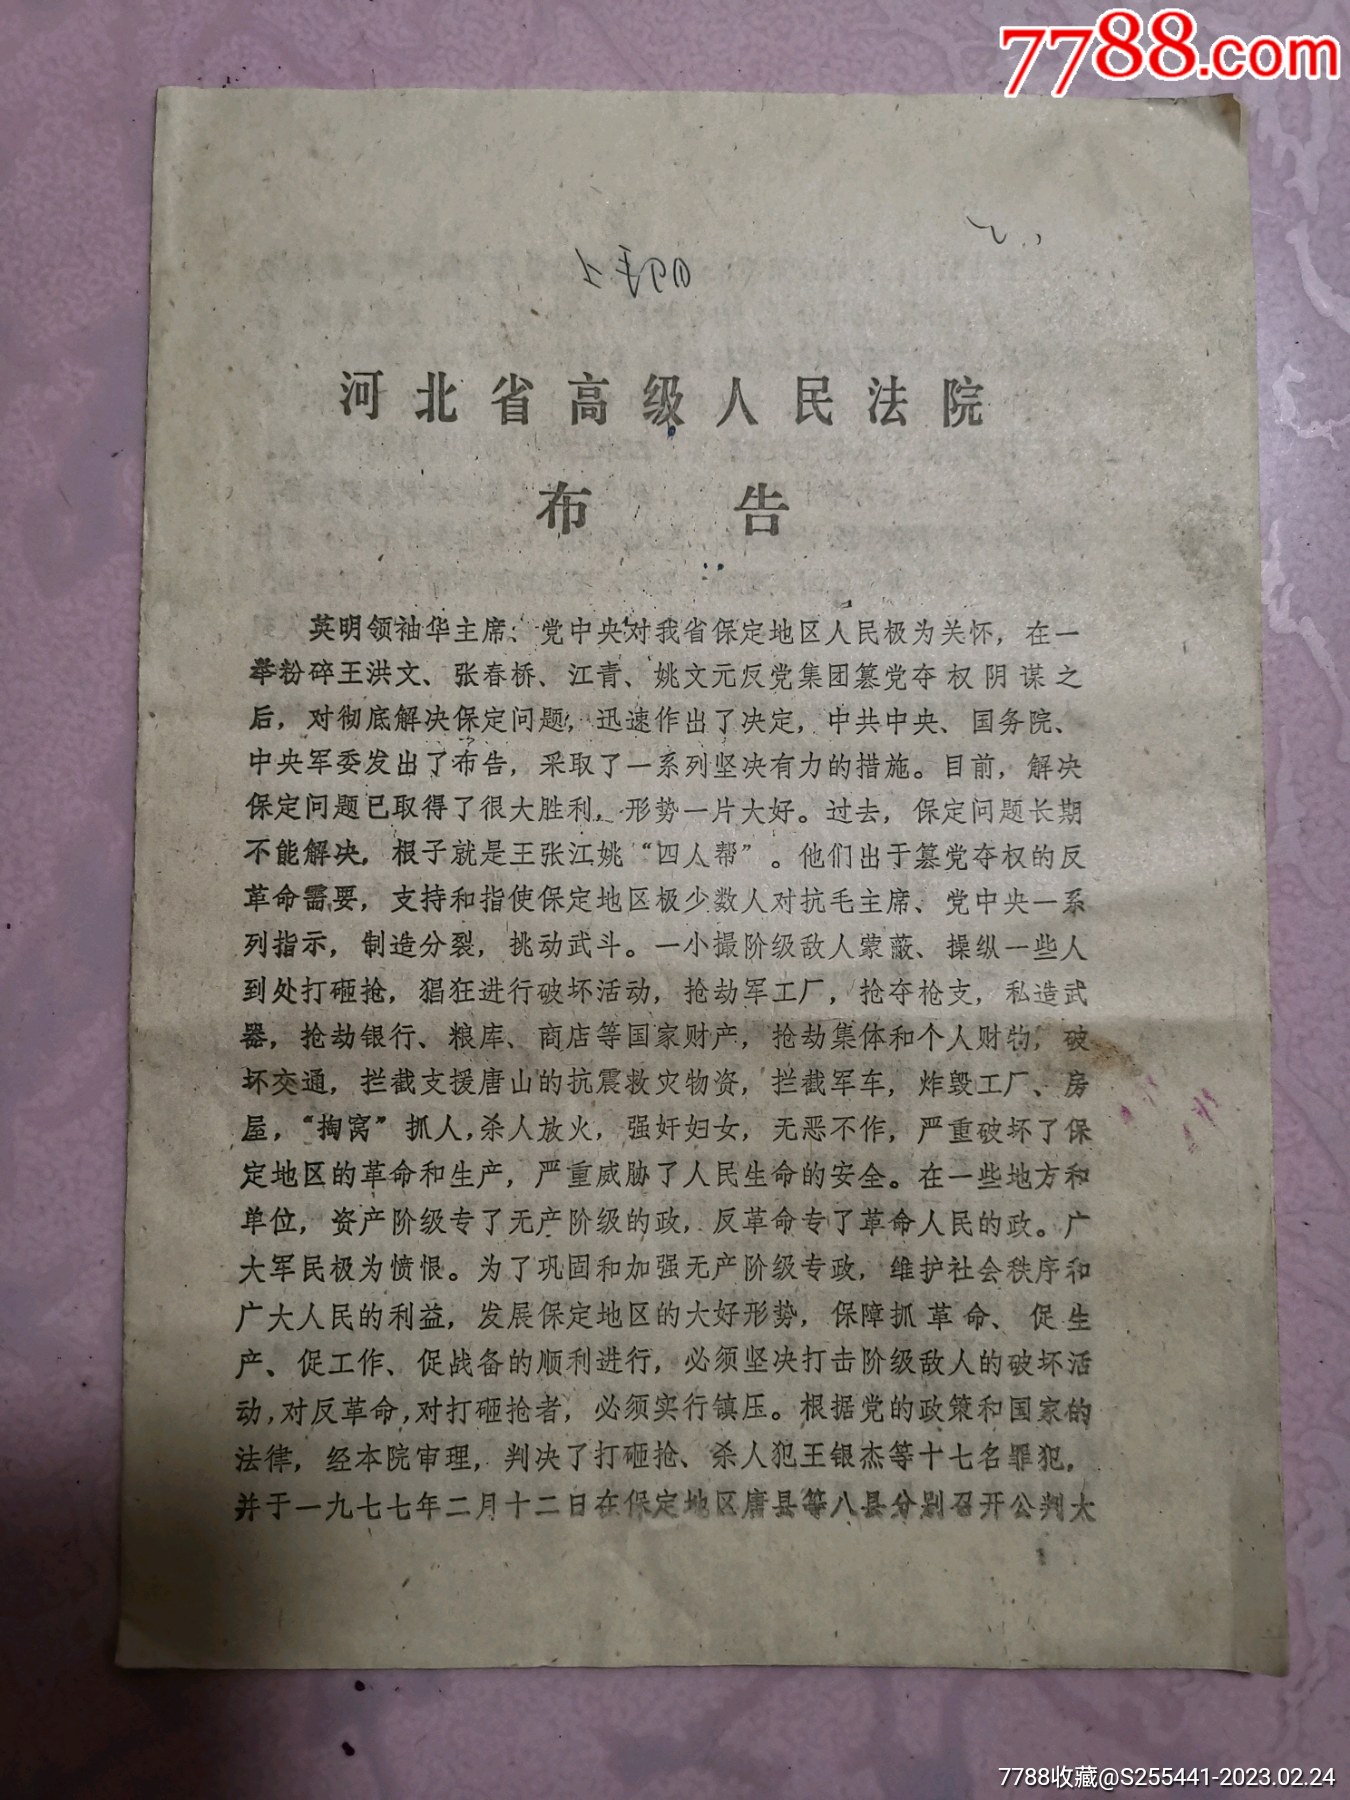 7788.com
河北省高级人民法院
布告
英明领袖华主席、党中央对我省保定地区人民极为关怀，在一
举粉碎王洪文、张春桥、江青、姚文元反党集团篡党夺权阴谋之
后，对彻底解决保定问题，迅速作出了决定，中共中央、国务院、
中央军委发出了布告，采取了一系列坚决有力的措施。目前，解决
保定问题已取得了很大胜利，形势一片大好。过去，保定问题长期
不能解决，根子就是王张江姚“四人帮”。他们出于篡党夺权的反
革命需要，支持和指使保定地区极少数人对抗毛主席、党中央一系
列指示，制造分裂，挑动武斗。一小撮阶级敌人蒙蔽、操纵一些人
到处打砸抢，猖狂进行破坏活动，抢劫军工厂，抢夺枪支，私造武
器，抢劫银行、粮库、商店等国家财产，抢劫集体和个人财物，破
坏交通，拦截支援唐山的抗震救灾物资，拦截军车，炸毁工厂、房
屋，“掏窝”抓人，杀人放火，强奸妇女，无恶不作，严重破坏了保
定地区的革命和生产，严重威胁了人民生命的安全。在一些地方和
单位，资产阶级专了无产阶级的政，反革命专了革命人民的政。广
大军民极为愤恨。为了巩固和加强无产阶级专政，维护社会秩序和
广大人民的利益，发展保定地区的大好形势，保障抓革命、促生
产、促工作、促战备的顺利进行，必须坚决打击阶级敌人的破坏活
动，对反革命，对打砸抢者，必须实行镇压。根据党的政策和国家的
法律，经本院审理，判决了打砸抢、杀人犯王银杰等十七名罪犯，
并于一九七七年二月十二日在保定地区唐县等八县分别召开公判大
7788收藏@S255441-2023.02.24